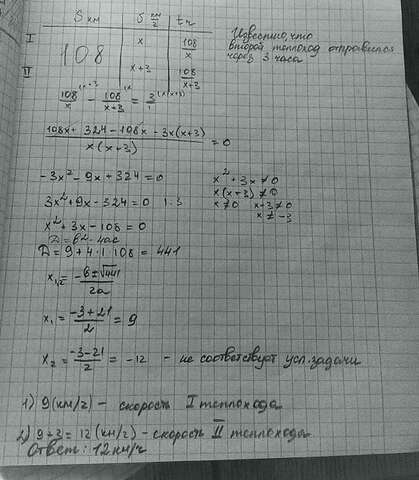 S км | υ км/ч | t ч
I | 108 | x | 108/x
II | x+3 | 108/x+3
Известно, что
второй теплоход отправился
через 3 часа
108/x ^(x+3 - 108/x+3 ^(x = 3/1 ^(x(x+3)
108x + 324 - 108x - 3x(x+3) / x(x+3) = 0
-3x² - 9x + 324 = 0
x² + 3x ≠ 0
x(x+3) ≠ 0
x ≠ 0 x+3 ≠ 0
x ≠ -3
3x² + 9x - 324 = 0 |:3
x² + 3x - 108 = 0
D = b² - 4ac
D = 9 + 4·1·108 = 441
x₁,₂ = -b ± √441 / 2a
x₁ = -3+21 / 2 = 9
x₂ = -3-21 / 2 = -12 - не соответствует усл. задачи
1) 9 (км/ч) - скорость I теплохода
2) 9+3 = 12 (км/ч) - скорость II теплохода
Ответ: 12 км/ч